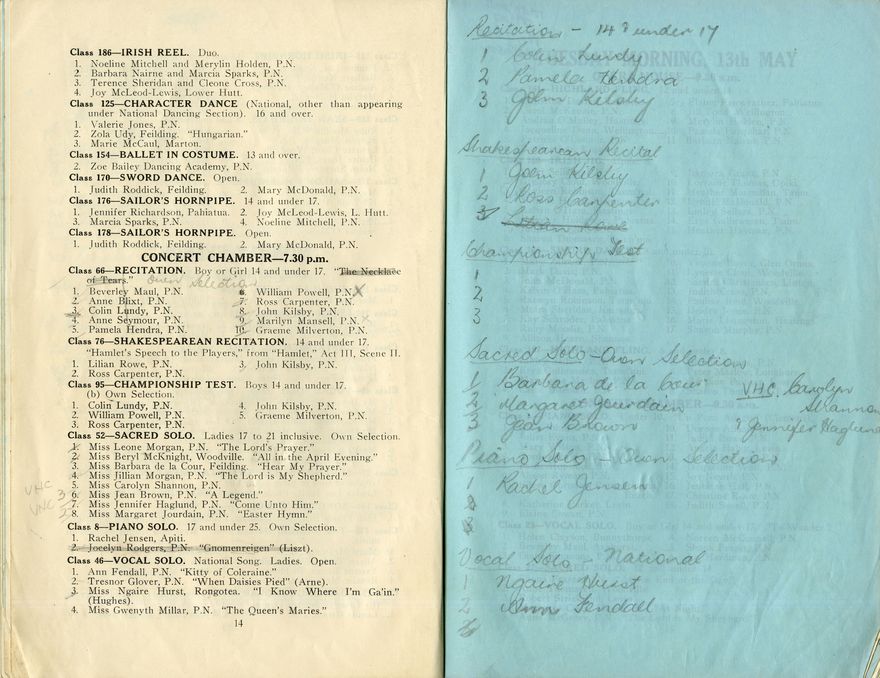 Class 186—IRISH REEL. Duo.
1. Noeline Mitchell and Merylin Holden, P.N.
2. Barbara Nairne and Marcia Sparks, P.N.
3. Terence Sheridan and Cleone Cross, P.N.
4. Joy McLeod-Lewis, Lower Hutt.
Class 125—CHARACTER DANCE (National, other than appearing
under National Dancing Section). 16 and over.
1. Valerie Jones, P.N.
2. Zola Udy, Feilding. "Hungarian."
3. Marie McCaul, Marton.
Class 154—BALLET IN COSTUME. 13 and over.
2. Zoe Bailey Dancing Academy, P.N.
Class 170—SWORD DANCE. Open.
1. Judith Roddick, Feilding. 2. Mary McDonald, P.N.
Class 176—SAILOR'S HORNPIPE. 14 and under 17.
1. Jennifer Richardson, Pahiatua. 2. Joy McLeod-Lewis, L. Hutt.
3. Marcia Sparks, P.N. 4. Noeline Mitchell, P.N.
Class 178—SAILOR'S HORNPIPE. Open.
1. Judith Roddick, Feilding. 2. Mary McDonald, P.N.
CONCERT CHAMBER—7.30 p.m.
Class 66—RECITATION. Boy or Girl 14 and under 17. "The Necklace
of Tears." Own Selection
1. Beverley Maul, P.N. 6. William Powell, P.N. X
2. Anne Blixt, P.N. 7. Ross Carpenter, P.N.
3. Colin Lundy, P.N. 8. John Kilsby, P.N.
4. Anne Seymour, P.N. 9. Marilyn Mansell, P.N. X
5. Pamela Hendra, P.N. 10. Graeme Milverton, P.N.
Class 76—SHAKESPEAREAN RECITATION. 14 and under 17.
"Hamlet's Speech to the Players," from "Hamlet," Act III, Scene II.
1. Lilian Rowe, P.N. 3. John Kilsby, P.N.
2. Ross Carpenter, P.N.
Class 95—CHAMPIONSHIP TEST. Boys 14 and under 17.
(b) Own Selection.
1. Colin Lundy, P.N. 4. John Kilsby, P.N.
2. William Powell, P.N. 5. Graeme Milverton, P.N.
3. Ross Carpenter, P.N.
Class 52—SACRED SOLO. Ladies 17 to 21 inclusive. Own Selection.
1. Miss Leone Morgan, P.N. "The Lord's Prayer."
2. Miss Beryl McKnight, Woodville. "All in the April Evening."
3. Miss Barbara de la Cour, Feilding. "Hear My Prayer."
4. Miss Jillian Morgan, P.N. "The Lord is My Shepherd."
VHC 5. Miss Carolyn Shannon, P.N.
3 6. Miss Jean Brown, P.N. "A Legend."
VHC 7. Miss Jennifer Haglund, P.N. "Come Unto Him."
8. Miss Margaret Jourdain, P.N. "Easter Hymn."
Class 8—PIANO SOLO. 17 and under 25. Own Selection.
1. Rachel Jensen, Apiti.
2. Jocelyn Rodgers, P.N. "Gnomenreigen" (Liszt).
Class 46—VOCAL SOLO. National Song. Ladies. Open.
1. Ann Fendall, P.N. "Kitty of Coleraine."
2. Tresnor Glover, P.N. "When Daisies Pied" (Arne).
3. Miss Ngaire Hurst, Rongotea. "I Know Where I'm Ga'in."
(Hughes).
4. Miss Gwenyth Millar, P.N. "The Queen's Maries."
14
Recitation - 14 & under 17
1 Colin Lundy
2 Pamela Hendra
3 John Kilsby
Shakespearean Recital
1 John Kilsby
2 Ross Carpenter
3 Lilian Rowe
Championship Test
1
2
3
Sacred Solo - Own Selection
1 Barbara de la Cour
2 Margaret Jourdain
3 Jean Brown
VHC. Carolyn
Shannon
& Jennifer Haglund
Piano Solo - Own Selection
1 Rachel Jensen
2
3
Vocal Solo - National
1 Ngaire Hurst
2 Ann Fendall
3